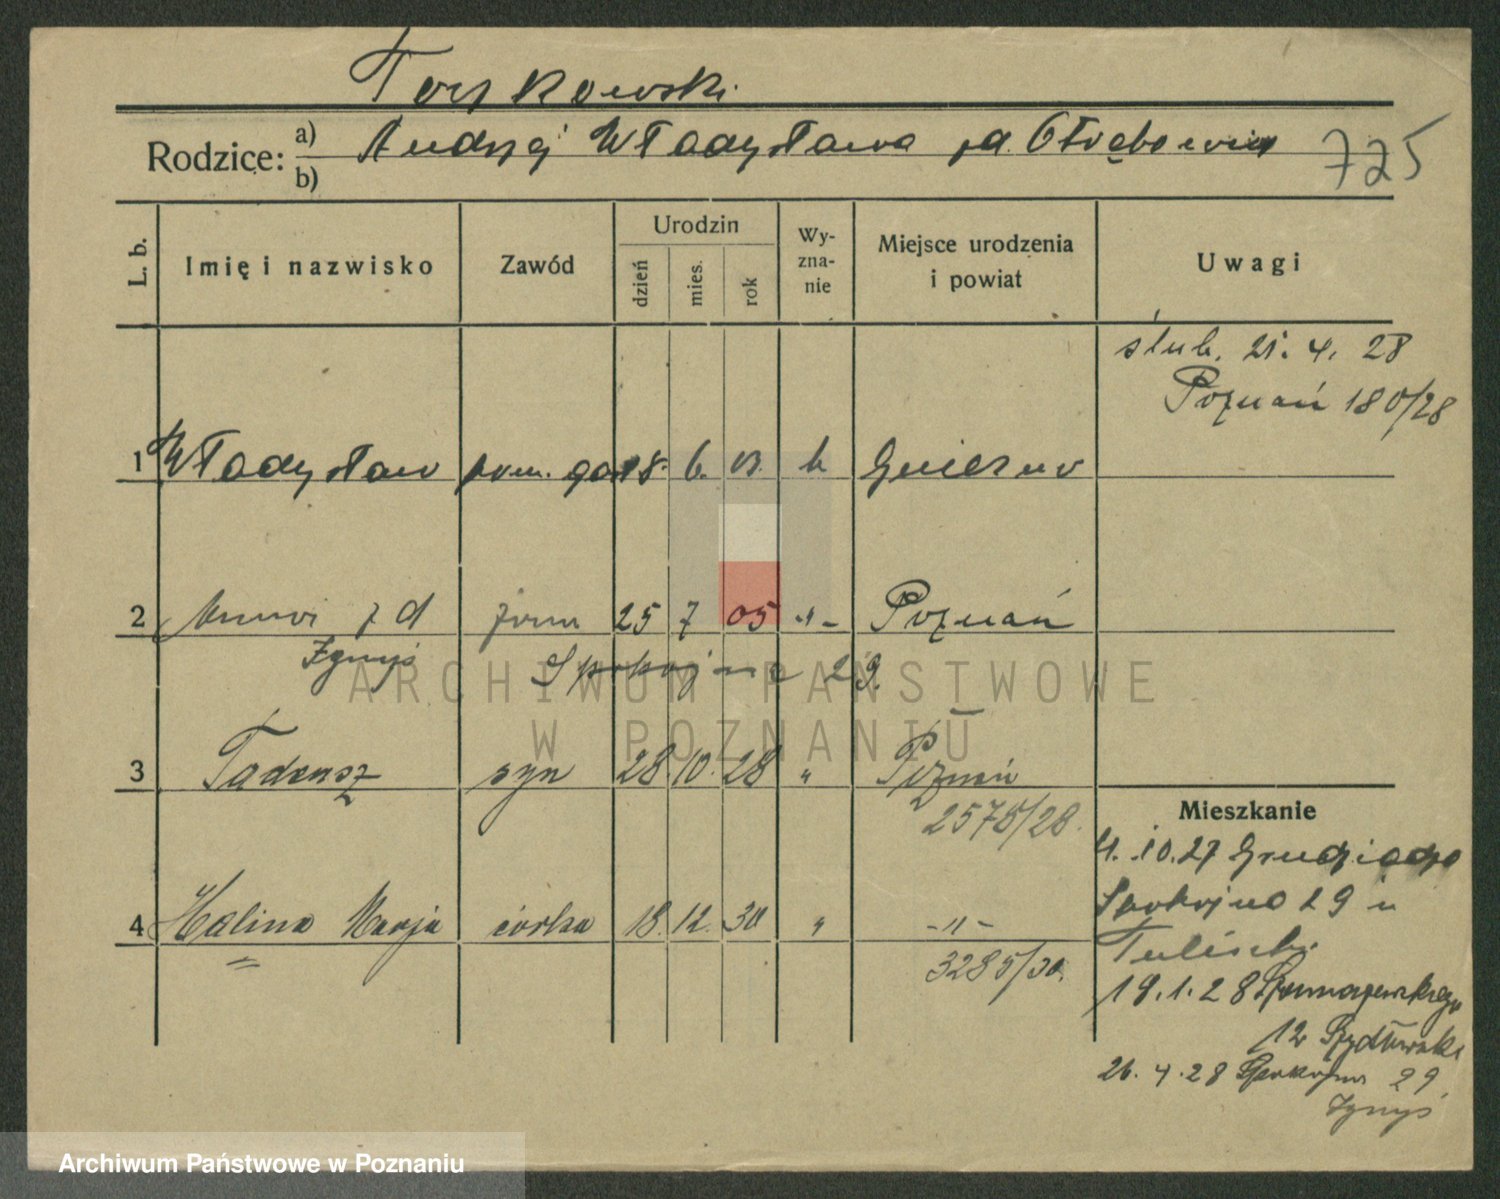 Rodzice: a) Andrzej Władysława zd.
b)
725
L. b.
Imię i nazwisko
Zawód
Urodzin
dzień
mies.
rok
Wy-
zna-
nie
Miejsce urodzenia
i powiat
Uwagi
ślub. 21. 4. 28
Poznań 180/28
1 Władysław pom. 18. 6. 03. k Gniezno
2 z d żona 25 7 05 -"- Poznań
Spokojna 29.
3 Tadeusz syn 28. 10. 28 " Poznań
2575/28.
4 Halina Marja córka 18. 12. 30 " -"-
3285/30.
Mieszkanie
10.27
Spokojna 29 u
19.1.28
12
26.4.28 Spokojna 29
ARCHIWUM PAŃSTWOWE
W POZNANIU
Archiwum Państwowe w Poznaniu